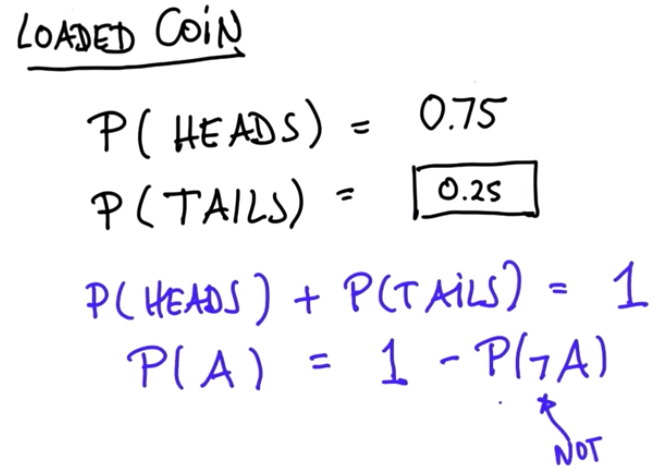 LOADED COIN
P(HEADS) = 0.75
P(TAILS) = 0.25
P(HEADS) + P(TAILS) = 1
P(A) = 1 - P(¬A)
NOT